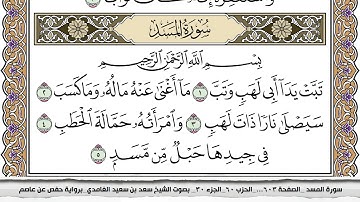 سُورَةُ المَسَدِ
بِسْمِ اللَّهِ الرَّحْمَٰنِ الرَّحِيمِ
تَبَّتْ يَدَآ أَبِى لَهَبٍ وَتَبَّ ١ مَآ أَغْنَىٰ عَنْهُ مَالُهُۥ وَمَا كَسَبَ ٢
سَيَصْلَىٰ نَارًا ذَاتَ لَهَبٍ ٣ وَٱمْرَأَتُهُۥ حَمَّالَةَ ٱلْحَطَبِ ٤
فِى جِيدِهَا حَبْلٌ مِّن مَّسَدٍۭ ٥
سورة المسد_الصفحة ٦٠٣...._الحزب ٦٠_الجزء ٣٠_ بصوت الشيخ سعد بن سعيد الغامدي_برواية حفص عن عاصم